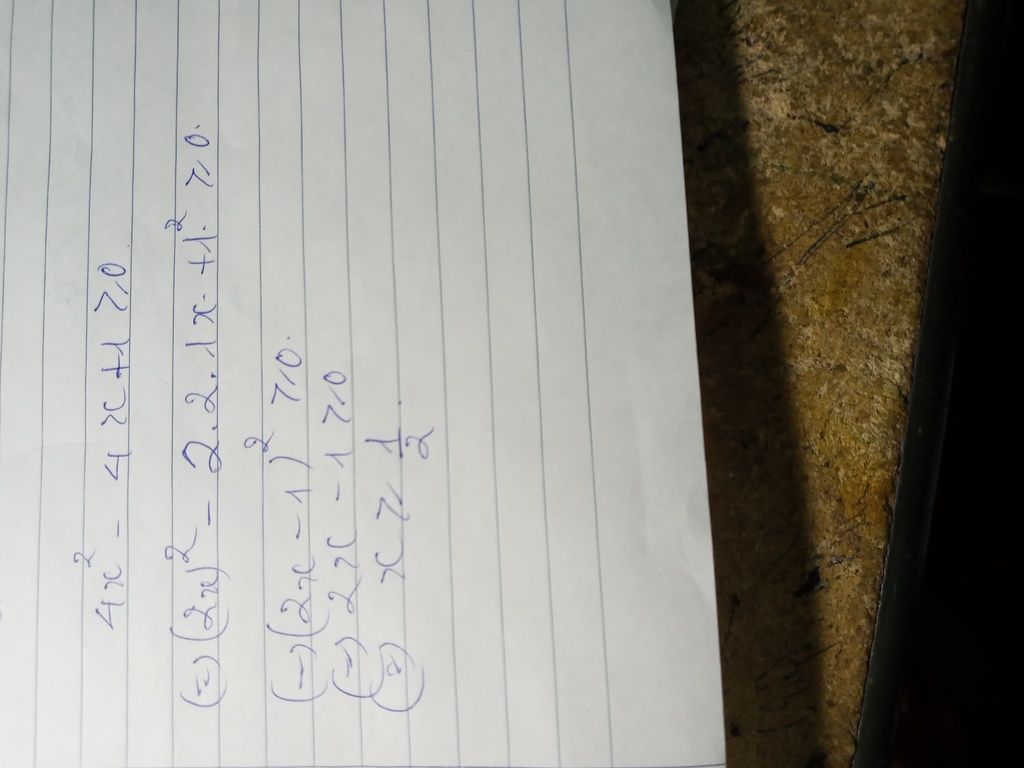 4x² - 4x+1 ≥ 0
(=) (2x)² - 2.2.1x + 1² ≥ 0.
(=) (2x - 1)² ≥ 0.
(=) 2x - 1 ≥ 0
(=) x ≥ 1/2.